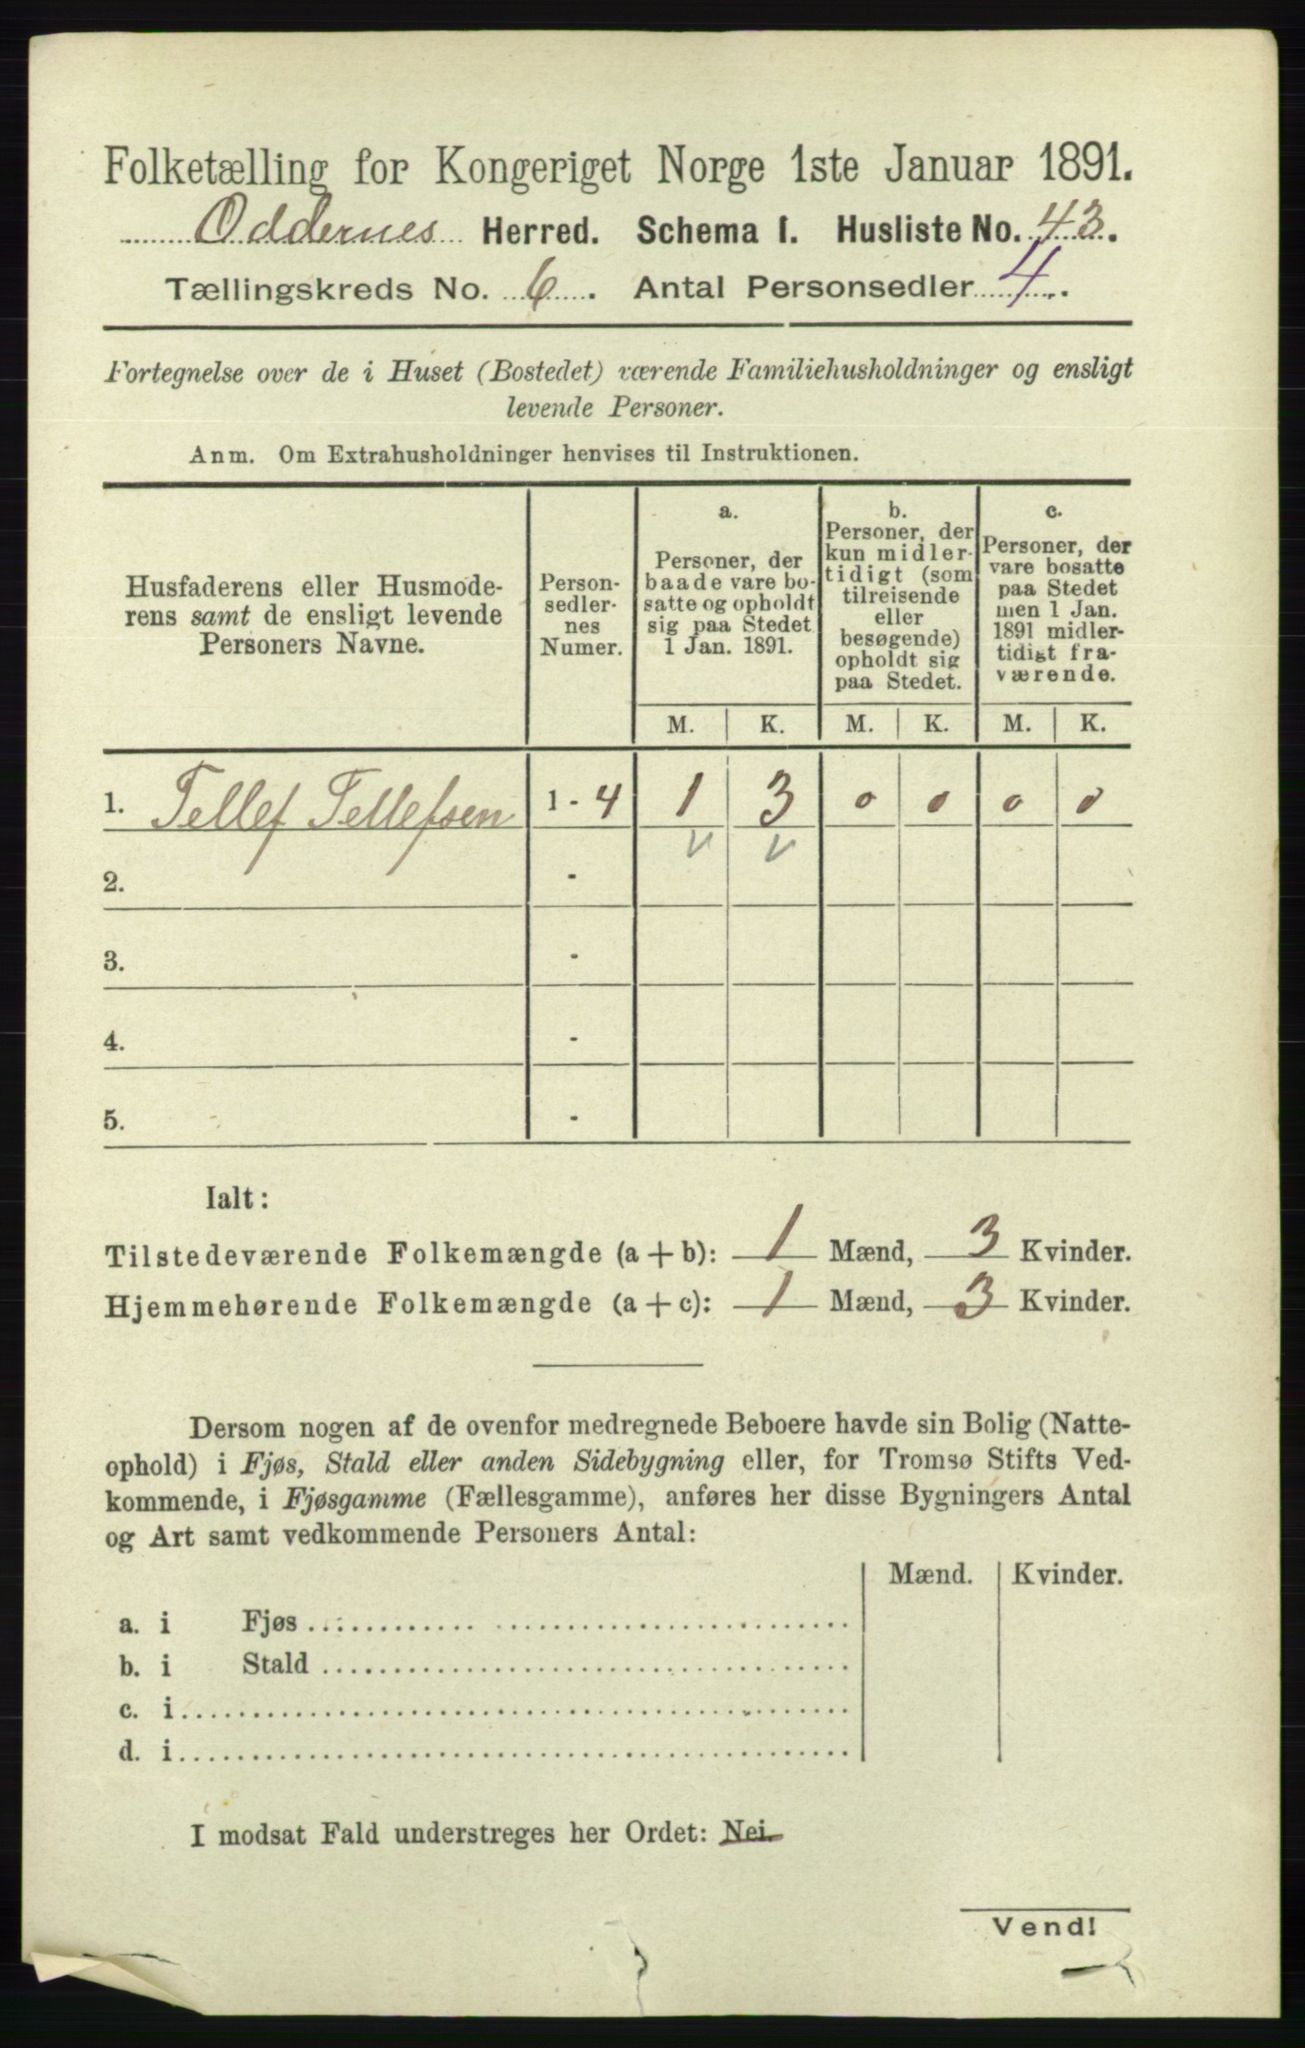 Folketælling for Kongeriget Norge 1ste Januar 1891.
Oddernes Herred. Schema I. Husliste No. 43.
Tællingskreds No. 6. Antal Personsedler 4.
Fortegnelse over de i Huset (Bostedet) værende Familiehusholdninger og ensligt
levende Personer.
Anm. Om Extrahusholdninger henvises til Instruktionen.
Husfaderens eller Husmode-
rens samt de ensligt levende
Personers Navne.
Person-
sedler-
nes
Numer.
a.
Personer, der
baade vare bo-
satte og opholdt
sig paa Stedet
1 Jan. 1891.
b.
Personer, der
kun midler-
tidigt (som
tilreisende
eller
besøgende)
opholdt sig
paa Stedet.
c.
Personer, der
vare bosatte
paa Stedet
men 1 Jan.
1891 midler-
tidigt fra-
værende.
M. K. M. K. M. K.
1. Tellef Tellefsen 1 - 4 1 3 0 0 0 0
2. -
3. -
4. -
5. -
Ialt:
Tilstedeværende Folkemængde (a + b): 1 Mænd, 3 Kvinder.
Hjemmehørende Folkemængde (a + c): 1 Mænd, 3 Kvinder.
Dersom nogen af de ovenfor medregnede Beboere havde sin Bolig (Natte-
ophold) i Fjøs, Stald eller anden Sidebygning eller, for Tromsø Stifts Ved-
kommende, i Fjøsgamme (Fællesgamme), anføres her disse Bygningers Antal
og Art samt vedkommende Personers Antal:
Mænd. Kvinder.
a. i Fjøs
b. i Stald
c. i
d. i
I modsat Fald understreges her Ordet: Nei
Vend!